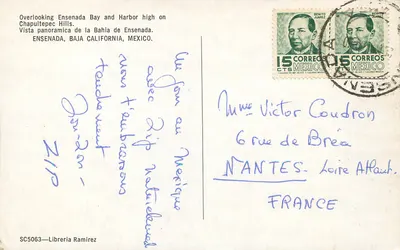 Overlooking Ensenada Bay and Harbor high on
Chapultepec Hills.
Vista panoramica de la Bahia de Ensenada.
ENSENADA, BAJA CALIFORNIA, MEXICO.
15 CORREOS
CTS MEXICO
15 CORREOS
CTS MEXICO
ENSENADA
Un jour au Mexique
avec Zip naturellement
nous t'embrassons
tendrement
ZIP
Mme Victor Coudron
6 rue de Bréa
NANTES - Loire Atlant.
FRANCE
SC5063—Libreria Ramirez